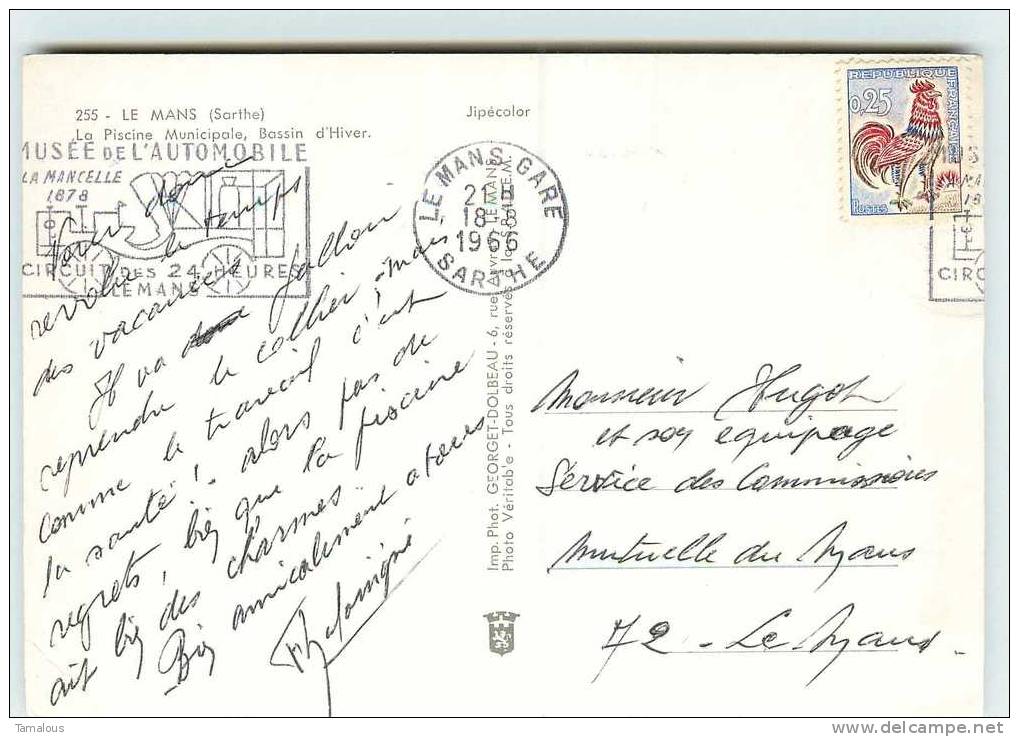 255 - LE MANS (Sarthe)
La Piscine Municipale, Bassin d'Hiver.
Jipécolor
MUSÉE DE L'AUTOMOBILE
LA MANCELLE
1878
CIRCUIT DES 24 HEURES
LE MANS
LE MANS GARE
21 H
18
1966
SARTHE
REPUBLIQUE FRANÇAISE
0,25
POSTES
CIRC
Voici donc
révolu le temps
des vacances
Il va falloir
reprendre le collier, mais
comme le travail c'est
la santé, alors pas de
regrets, bien que la piscine
ait bien des charmes.
Bien amicalement à tous
Imp. Phot. GEORGET-DOLBEAU - 6, rue LE MANS
Photo Véritab'e - Tous droits réservés
Monsieur Hugot
et son équipage
Service des Commissions
Mutuelle du Mans
72 - Le Mans
Tamalous
www.delcampe.net